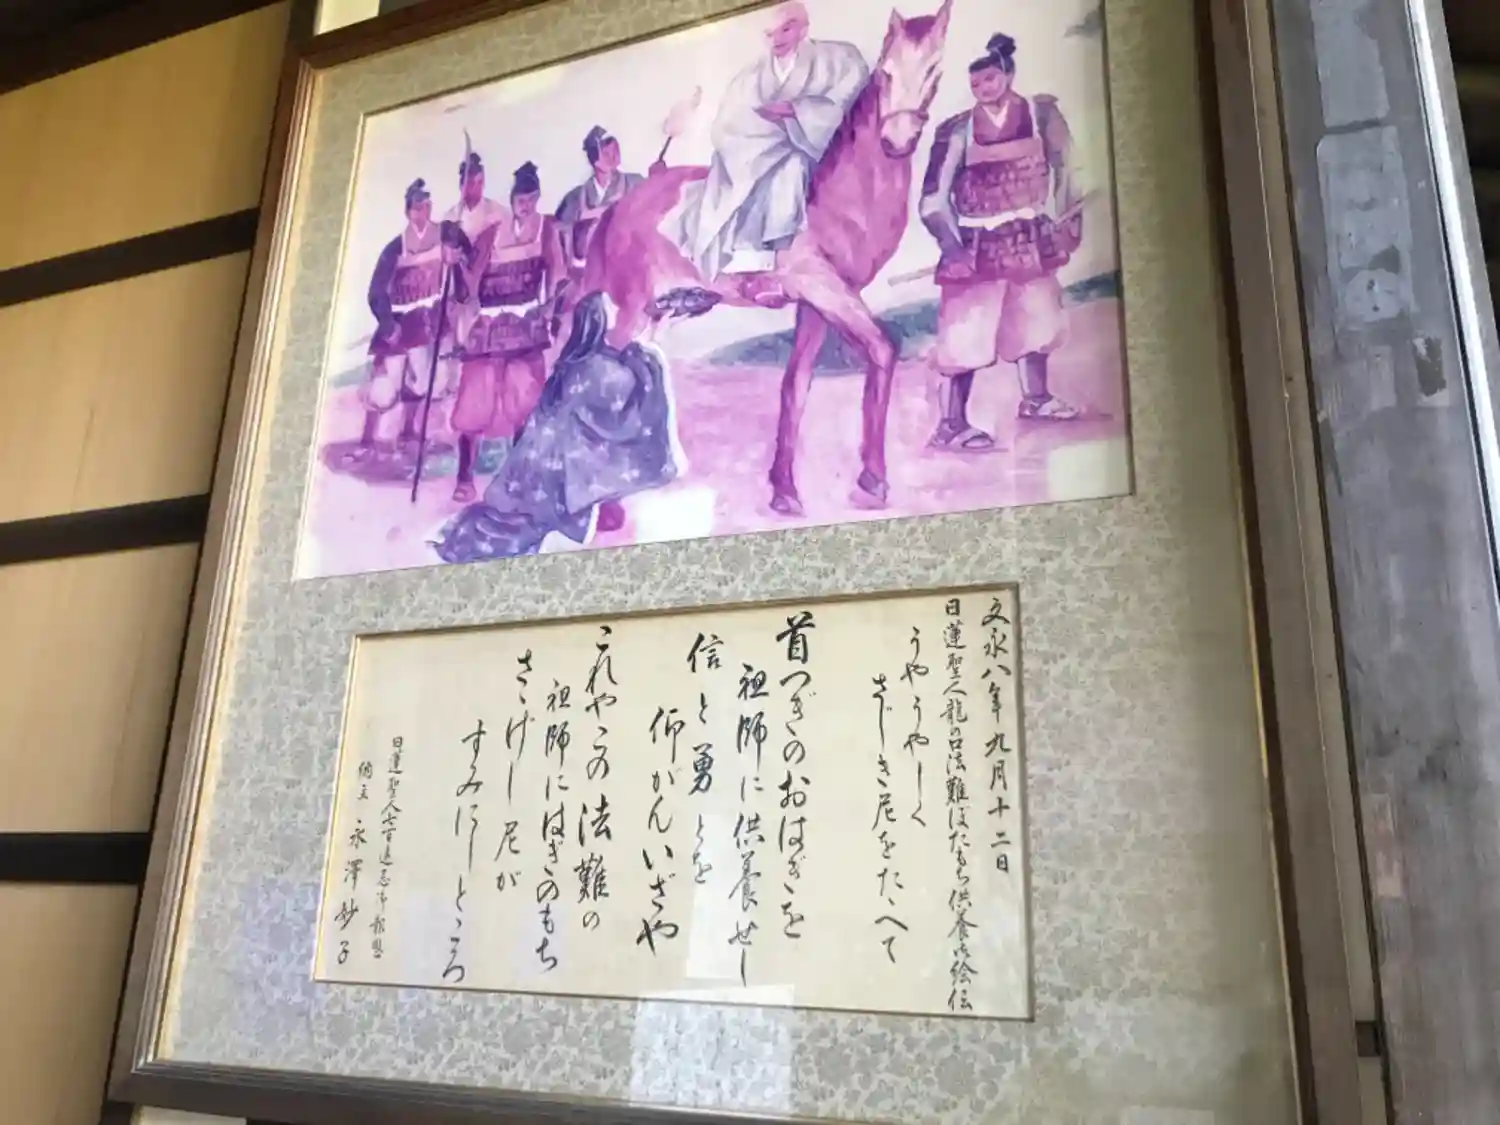 文永八年九月十二日
日蓮聖人龍の口法難ぼたもち供養御絵伝
うやうやしく
さじき尼をたたへて
首つぎのおはぎを
祖師に供養せし
信と勇とを
仰がんいざや
これやこの法難の
祖師にはぎのもち
さゝげし尼が
すみにしところ
日蓮聖人七百遠忌御報恩
納主 永澤妙子